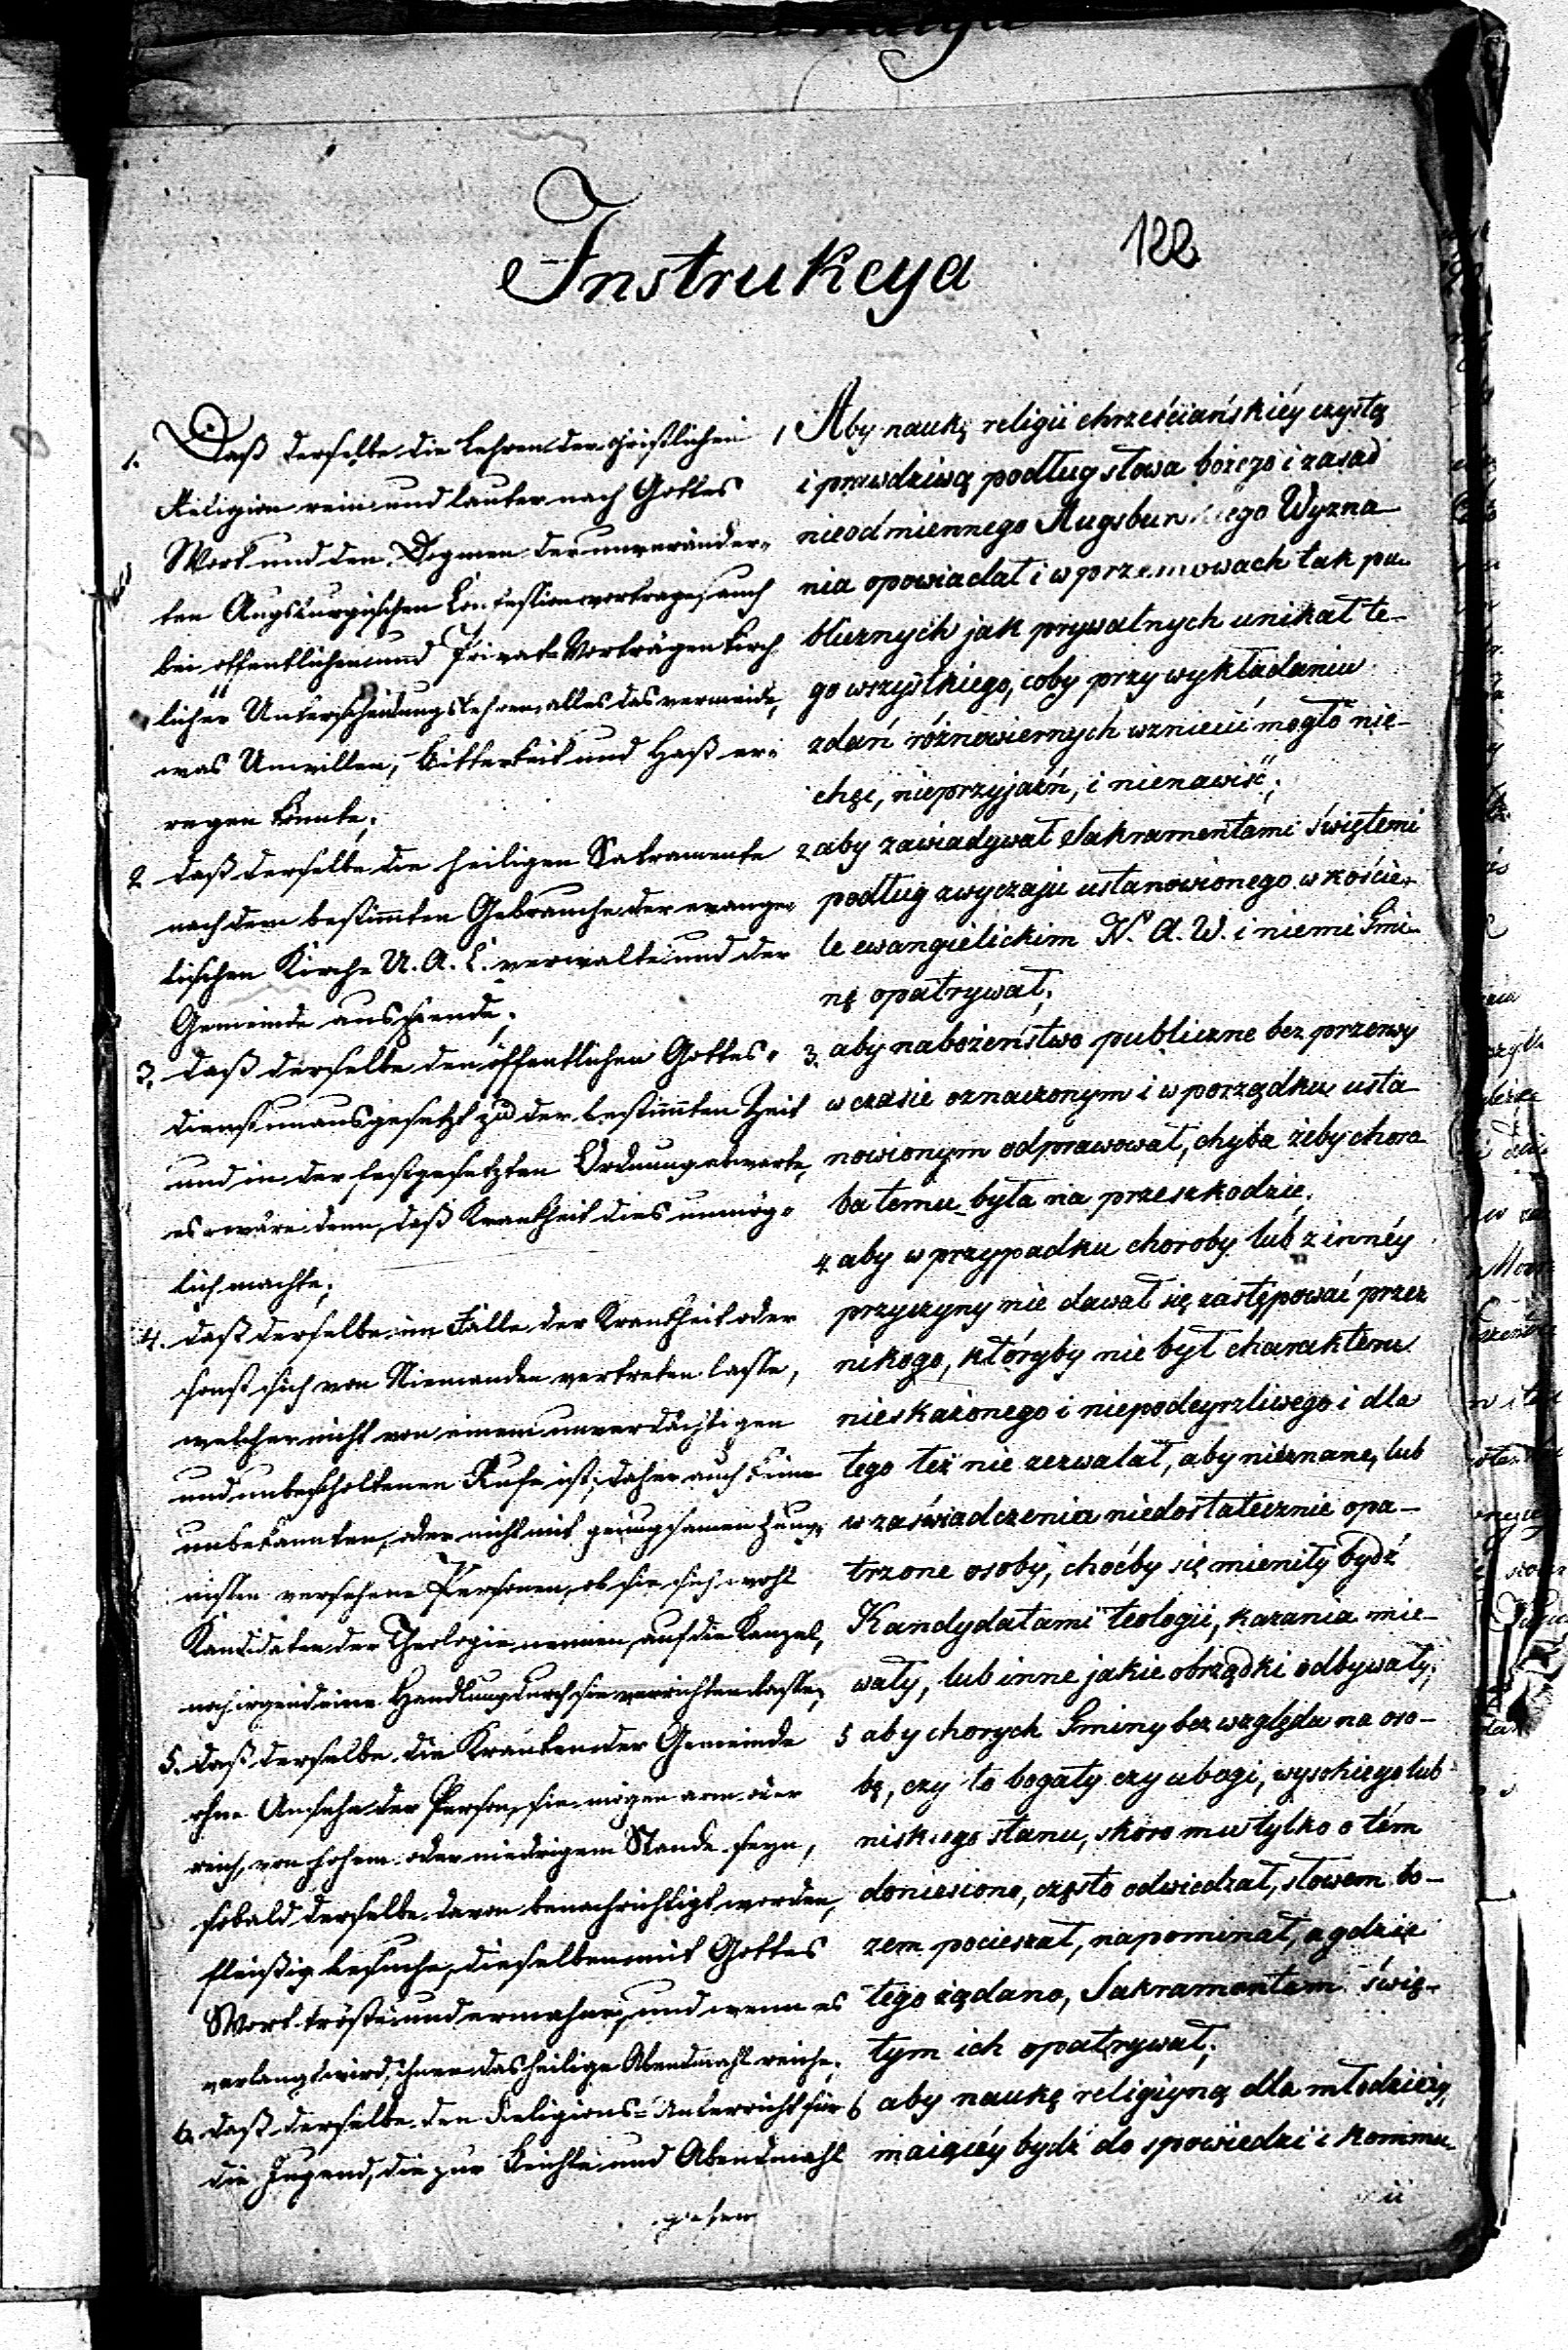 Instrukcya
122
1. Daß derselbe die Lehren der christlichen
Religion rein und lauter nach Gottes
Wort und den Dogmen der unveränder-
ten Augsburgischen Confession vortrage, auch
bei öffentlichen und Privat-Vorträgen kirch
licher Unterscheidungslehren, alles das vermeide,
was Unwillen, Bitterkeit und Haß er-
regen könnte;
2 daß derselbe die heiligen Sakramente
nach dem bestimmten Gebrauche der evange-
lischen Kirche U. A. C. verwalte und der
Gemeinde ausspende;
3, daß derselbe den öffentlichen Gottes-
dienst unausgesetzt zu der bestimmten Zeit
und in der festgesetzten Ordnung abwarte,
es wäre denn, daß Krankheit dies unmög-
lich machte;
4. daß derselbe im Falle der Krankheit oder
sonst sich von Niemanden vertreten lasse,
welcher nicht von einem unverdächtigen
und unbescholtenen Rufe ist; daher auch keine
unbekannten, oder nicht mit genugsamen Zeug-
nissen versehene Personen, ob sie sich wohl
Kandidaten der Theologie nennen, auf die Kanzel,
noch irgend eine Handlung durch sie verrichten lasse;
5. daß derselbe die Kranken der Gemeinde
ohne Ansehn der Person, sie mögen arm oder
reich, von hohem oder niedrigem Stande seyn,
sobald derselbe davon benachrichtigt worden,
fleißig besuche, dieselben mit Gottes
Wort tröste und ermahne, und wenn es
verlangt wird, ihnen das heilige Abendmahl reiche;
6. daß derselbe den Religions-Unterricht für
die Jugend, die zur Beichte und Abendmahl
gehen
1 Aby naukę religii chrześciańskiéy czystą
i prawdziwą podług słowa bożego i zasad
nieodmiennego Augsburskiego Wyzna
nia opowiadał i w przemowach tak pu-
blicznych jak prywatnych unikał te-
go wszystkiego, coby przy wykładaniu
zdań różnowiernych wzniecić mogło nie-
chęć, nieprzyjaźń, i nienawiść;
2 aby zawiadywał Sakramentami świętemi
podług zwyczaju ustanowionego w koście-
le ewangielickim N. A. W. i niemi Gmi-
nę opatrywał;
3. aby nabożeństwo publiczne bez przerwy
w czasie oznaczonym i w porządku usta
nowionym odprawował, chyba żeby choro
ba temu była na przeszkodzie;
4 aby w przypadku choroby lub z innéy
przyczyny nie dawał się zastępować przez
nikogo, któryby nie był charakteru
nieskażonego i niepodeyrzliwego i dla
tego też nie zezwalał, aby nieznane, lub
w zaświadczenia niedostatecznie opa-
trzone osoby, choćby się mieniły bydź
Kandydatami teologii, kazania mie-
wały, lub inne jakie obrządki odbywały;
5 aby chorych Gminy bez względu na oso-
bę, czy to bogaty czy ubogi, wysokiego lub
niskiego stanu, skoro mu tylko o tém
doniesiono, często odwiedzał, słowem bo-
żem pocieszał, napominał, a gdzie
tego żądano, Sakramentem świę-
tym ich opatrywał;
6 aby naukę religiyną dla młodzieży,
maiącéy bydź do spowiedzi i kommu-
nii